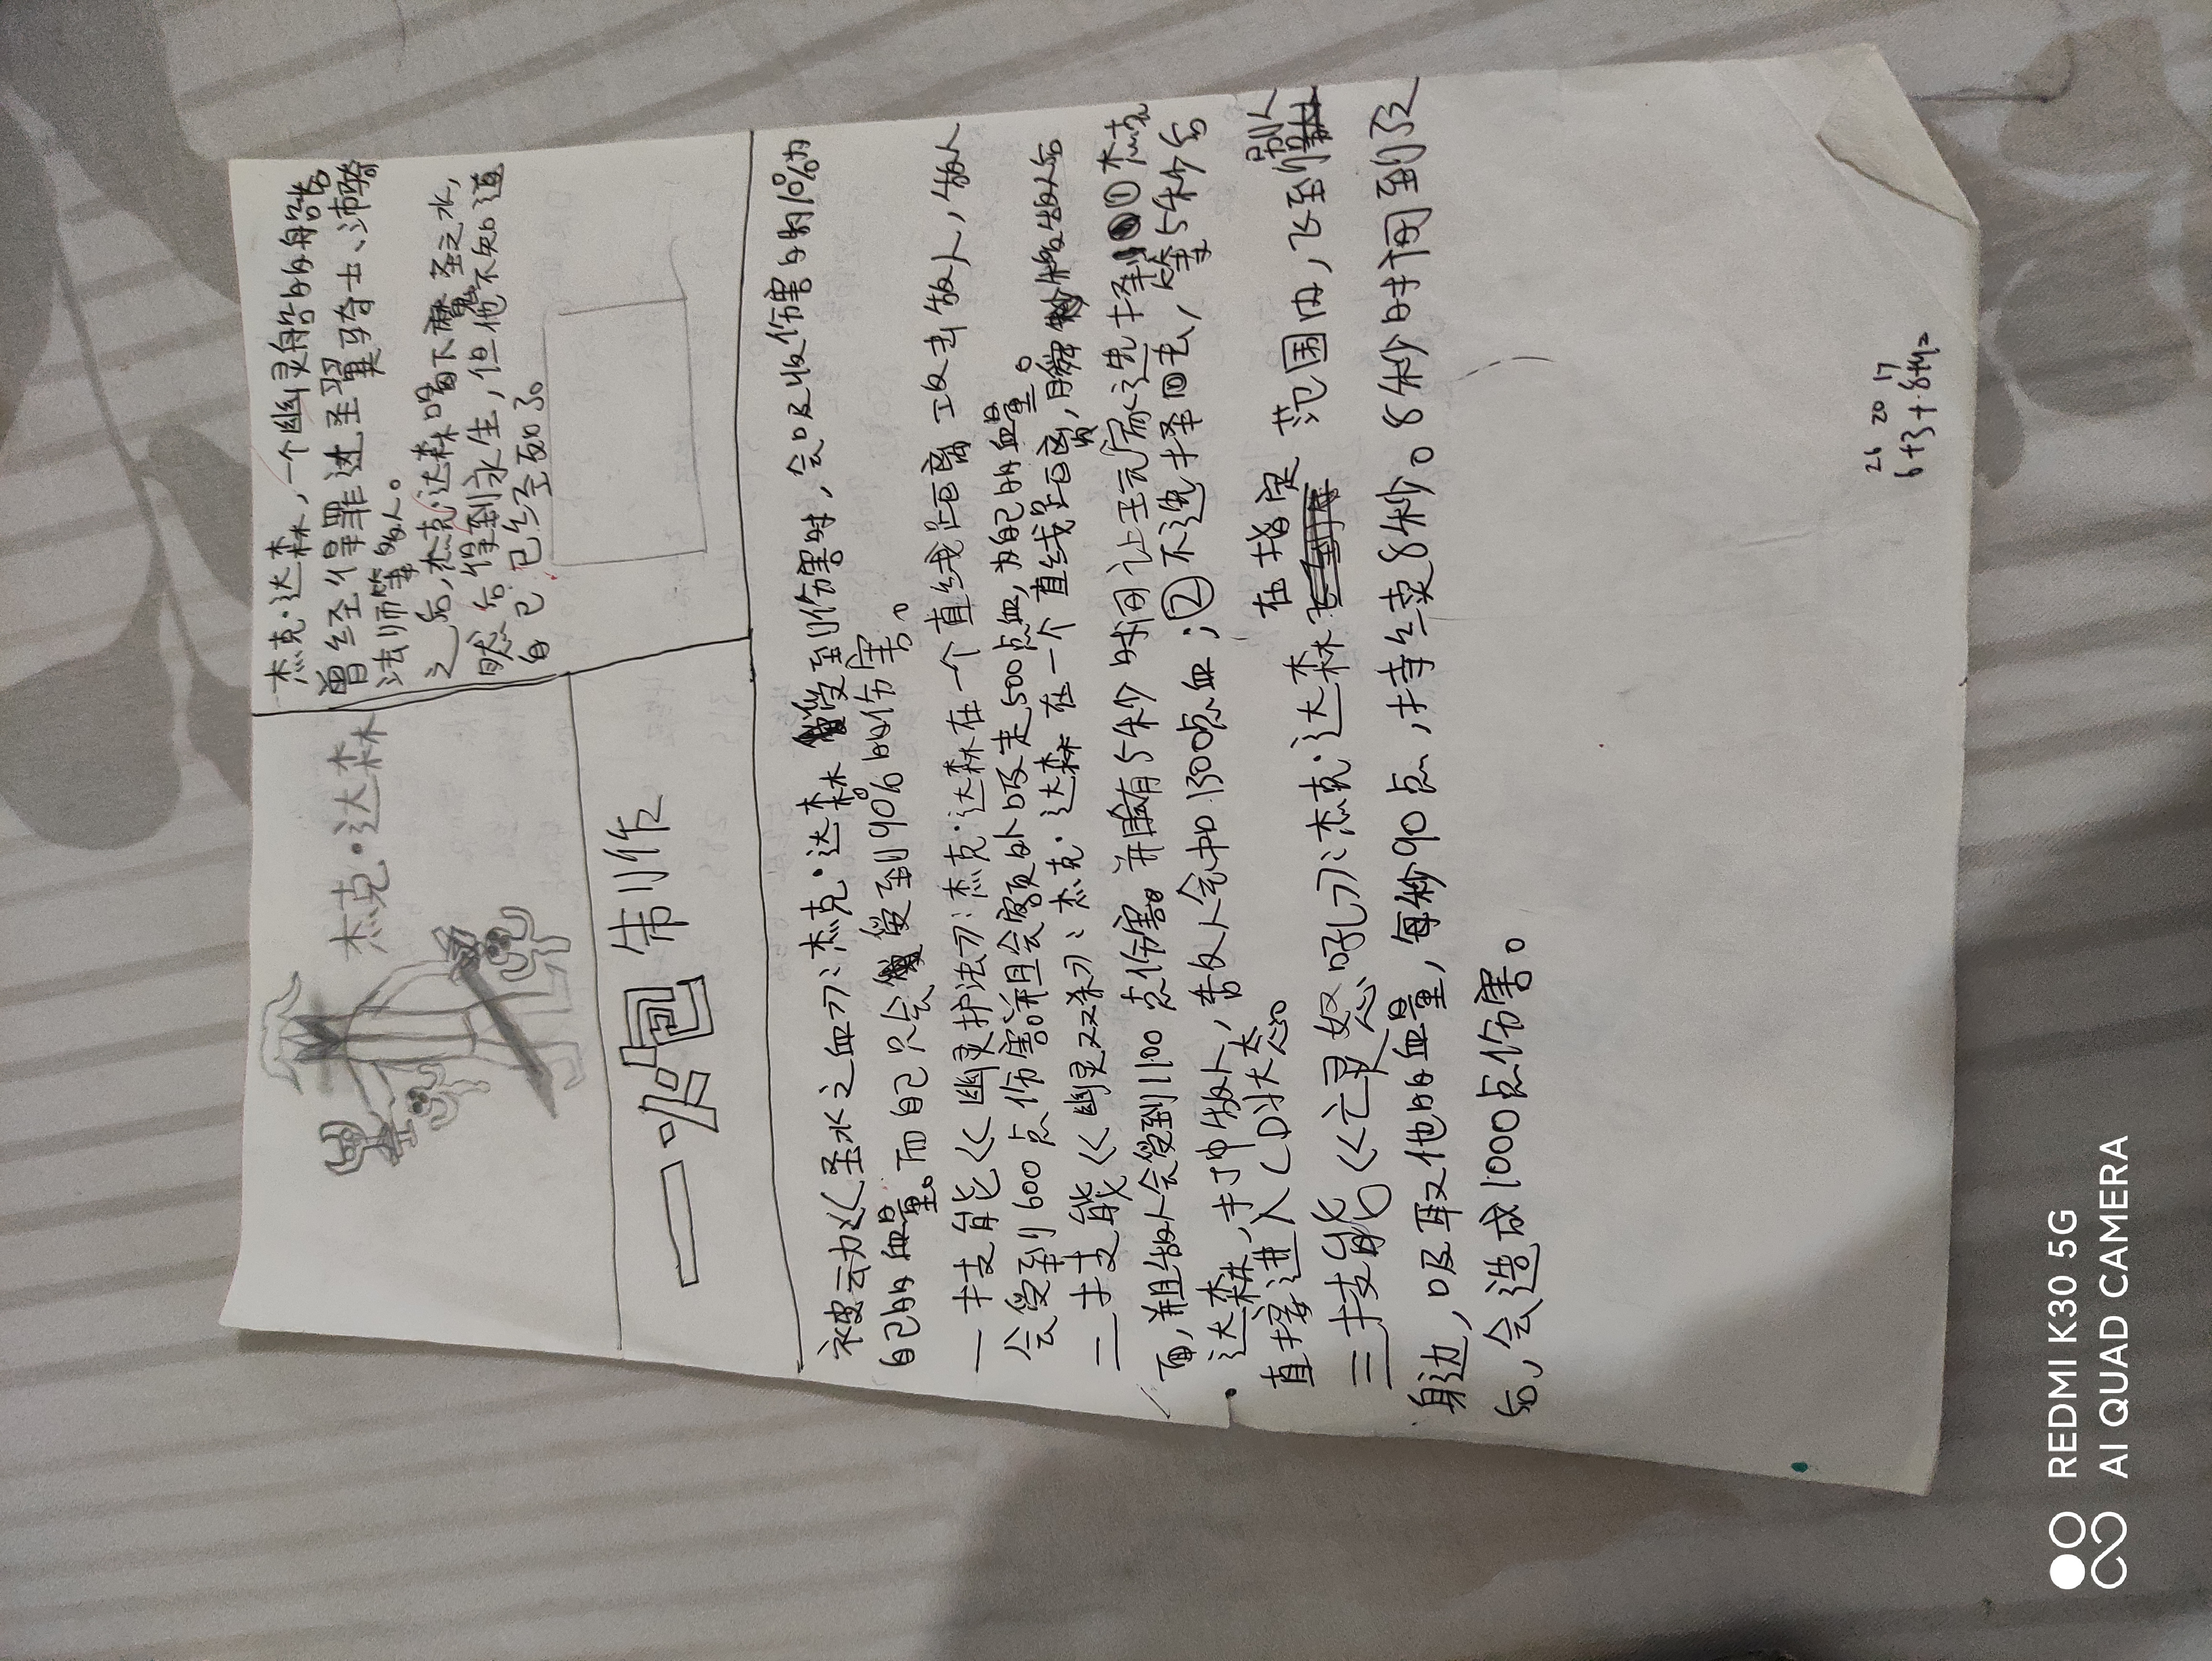 杰克·达森
杰克·达森，一个幽灵船的船长
曾经得罪过圣翼骑士、沛
法师等敌人。
之后，杰克·达森喝下圣之水，
既然后得到永生，但他不知道
自己已经死了。
制作
被动《圣水之血》：杰克·达森受到伤害时，会吸收伤害的10%为
自己的血量。而自己只会受到90%的伤害。
一技能《幽灵护法》：杰克·达森在一个直线距离攻击敌人，敌人
会受到600点伤害。并且会额外吸走500点血，为自己的血量。
二技能《幽灵双杀》：杰克·达森在一个直线距离，瞬敌人后
面，并且敌人会受到1100点伤害。并有5秒时间让玩家选择①杰克
·达森，手冲敌人，敌人会扣1300点血；②不选择回去，等5秒后
直接进入CD状态。
三技能《亡灵怒吼》：杰克·达森在指定范围内，飞到别人
身边，吸取他的血量，每秒90点，持续8秒。8秒时间到了之
后，会造成1000点伤害。
26 20 17
6+3+8+9=
REDMI K30 5G
AI QUAD CAMERA